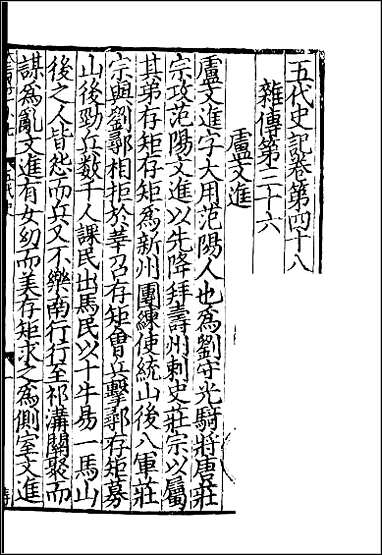 五代史記卷第四十八
雜傳第三十六
盧文進
盧文進字大用范陽人也爲劉守光騎將唐莊
宗攻范陽文進以先降拜壽州刺史莊宗以屬
其弟存矩存矩爲新州團練使統山後八軍莊
宗與劉鄩相拒於莘召存矩會兵擊鄩存矩募
山後勁兵數千人課民出馬民以十牛易一馬山
後之人皆怨而兵又不樂南行行至祁溝關聚而
謀爲亂文進有女幼而美存矩求之爲側室文進